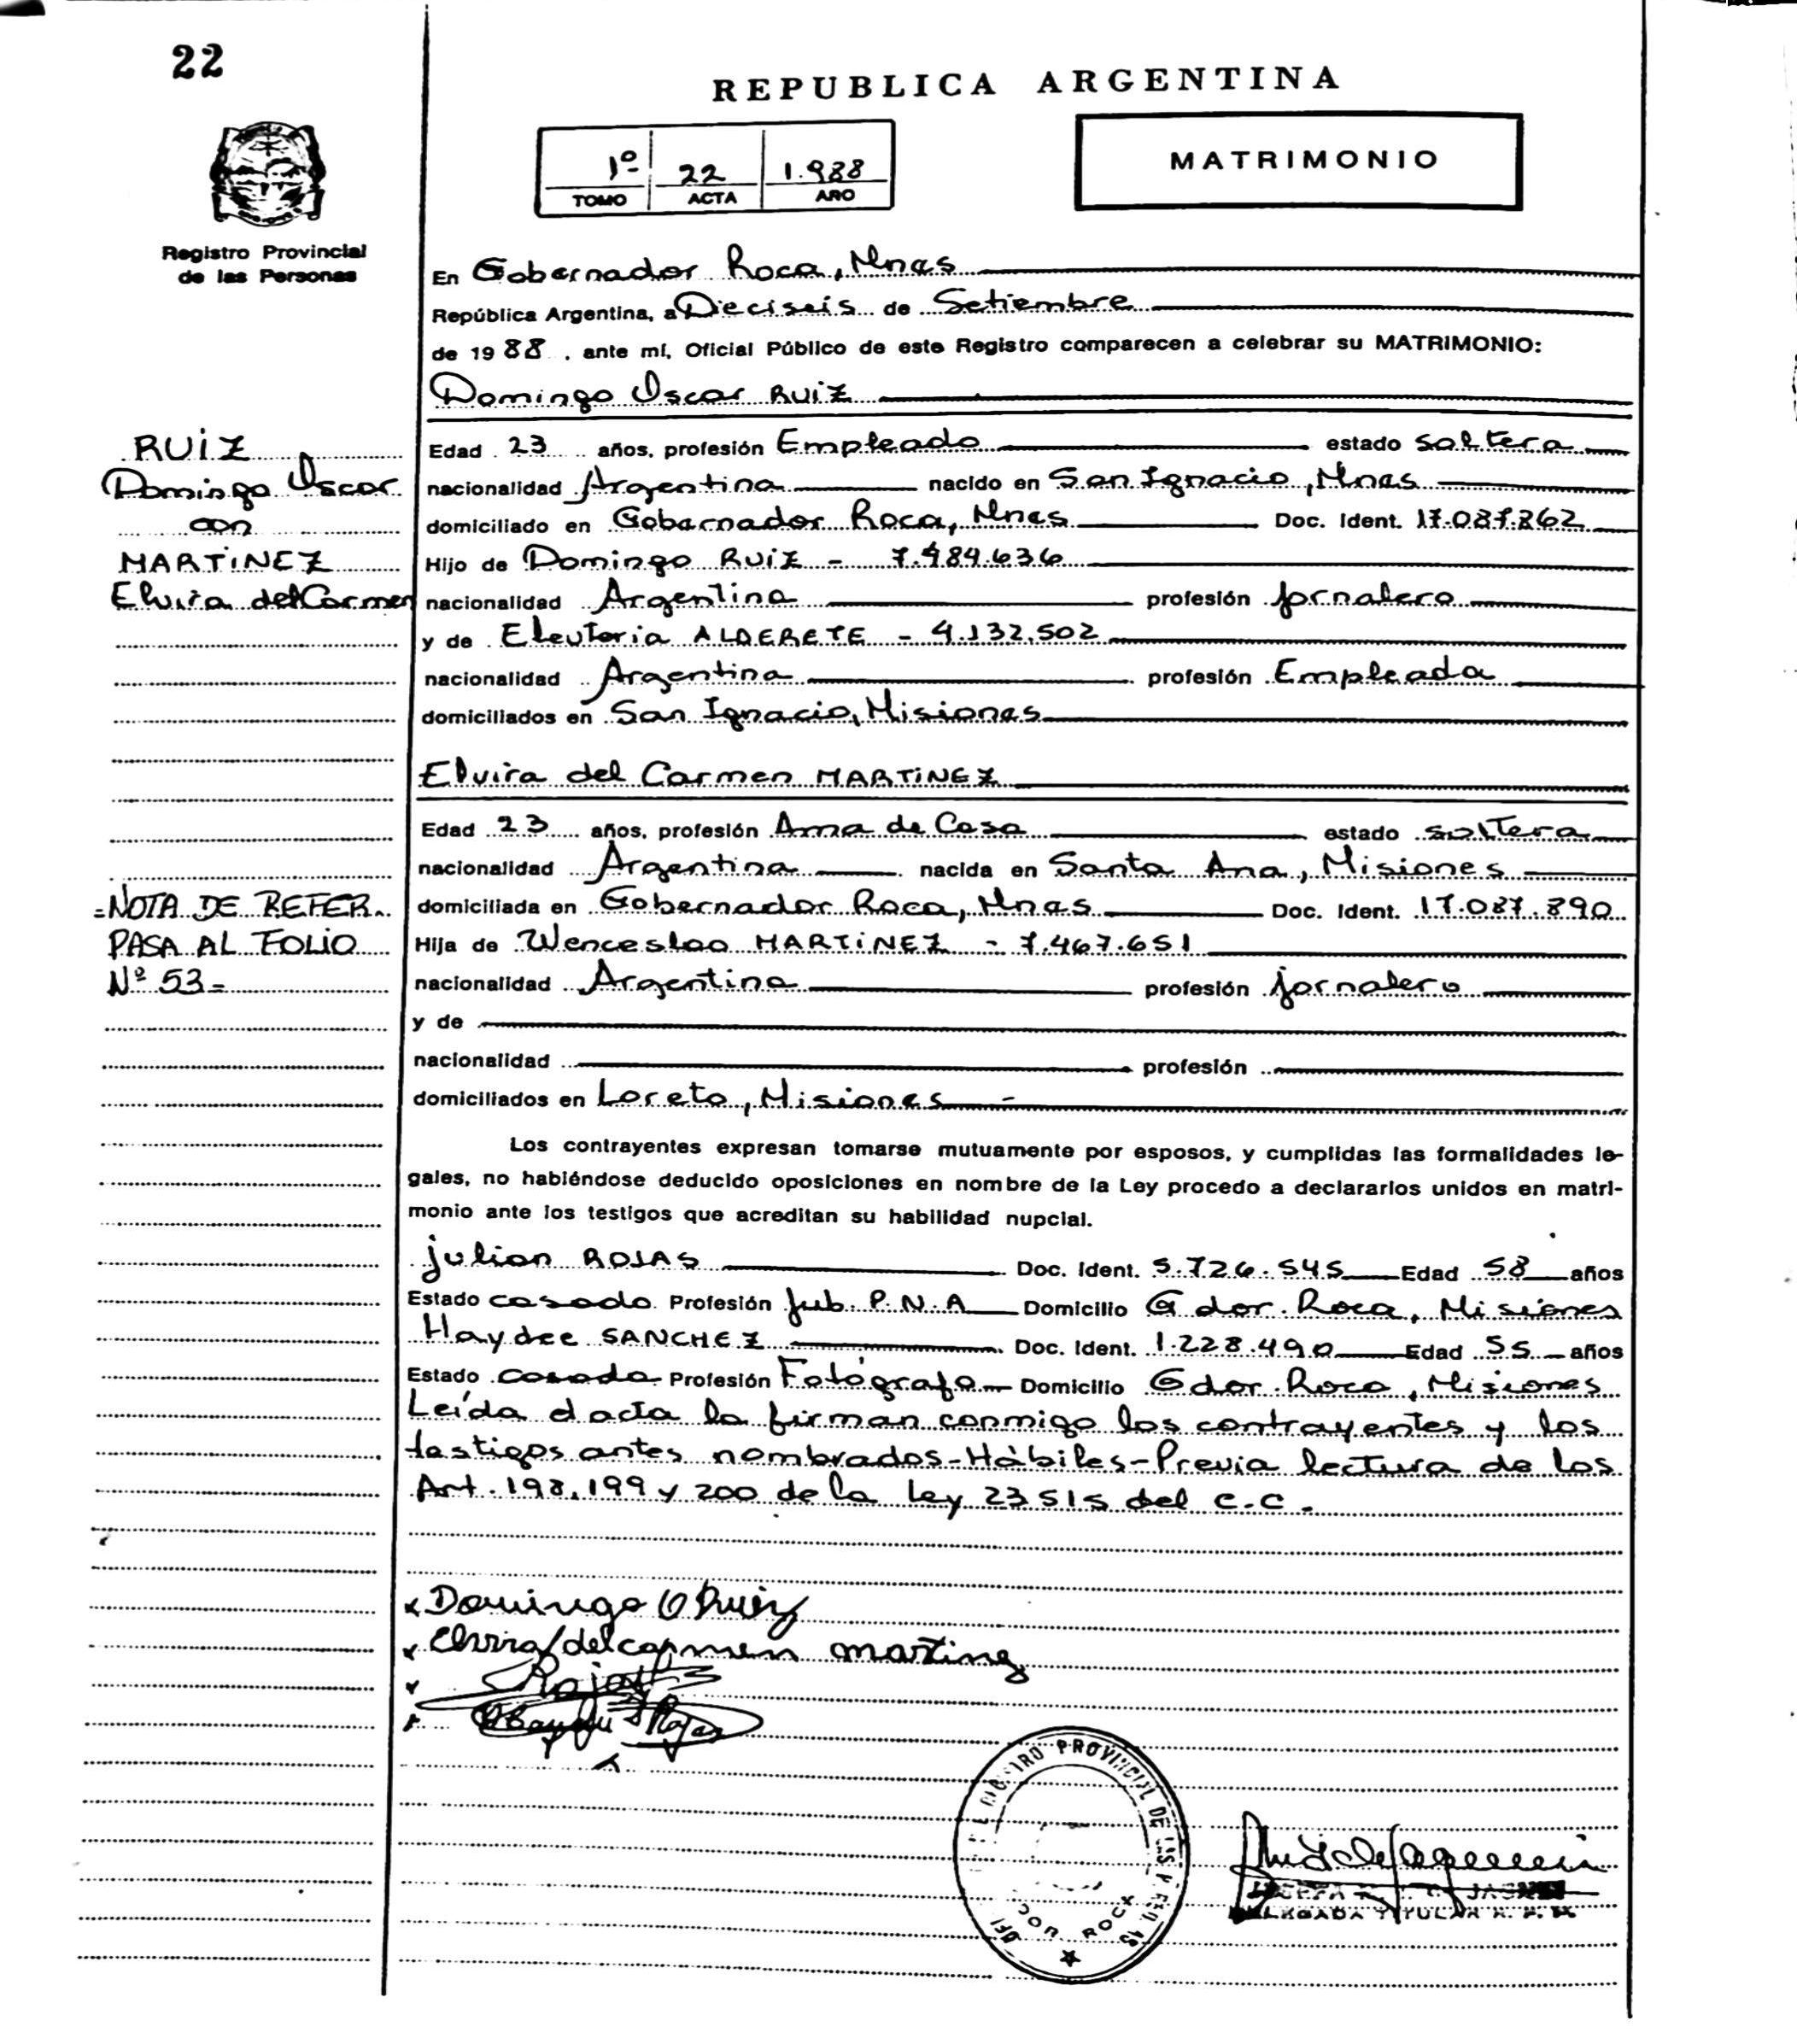 22
REPUBLICA ARGENTINA
1º 22 1.988
TOMO ACTA AÑO
MATRIMONIO
Registro Provincial
de las Personas
En Gobernador Roca, Mnes
República Argentina, a Dieciseis de Setiembre
de 1988, ante mí, Oficial Público de este Registro comparecen a celebrar su MATRIMONIO:
Domingo Oscar RUIZ
RUIZ
Domingo Oscar
con
MARTINEZ
Elvira del Carmen
Edad 23 años, profesión Empleado estado soltera
nacionalidad Argentina nacido en San Ignacio, Mnes
domiciliado en Gobernador Roca, Mnes Doc. Ident. 17.087.862
Hijo de Domingo RUIZ - 7.484.636
nacionalidad Argentina profesión jornalero
y de Eleuteria ALDERETE - 4.132.502
nacionalidad Argentina profesión Empleada
domiciliados en San Ignacio, Misiones
Elvira del Carmen MARTINEZ
Edad 23 años, profesión Ama de Casa estado soltera
nacionalidad Argentina nacida en Santa Ana, Misiones
domiciliada en Gobernador Roca, Mnes Doc. Ident. 17.087.890
Hija de Wenceslao MARTINEZ - 7.467.651
nacionalidad Argentina profesión jornalero
y de
nacionalidad profesión
domiciliados en Loreto, Misiones -
=NOTA DE REFER.
PASA AL FOLIO
Nº 53=
Los contrayentes expresan tomarse mutuamente por esposos, y cumplidas las formalidades le-
gales, no habiéndose deducido oposiciones en nombre de la Ley procedo a declararlos unidos en matri-
monio ante los testigos que acreditan su habilidad nupcial.
Julian ROJAS Doc. Ident. 5.726.545 Edad 58 años
Estado casado Profesión Jub. P.N.A Domicilio Gdor. Roca, Misiones
Haydee SANCHEZ Doc. Ident. 1.228.490 Edad 55 años
Estado casada Profesión Fotógrafa Domicilio Gdor. Roca, Misiones
Leída el acta la firman conmigo los contrayentes y los
testigos antes nombrados-Hábiles-Previa lectura de los
Art. 198, 199 y 200 de la ley 23515 del C.C.
Domingo O Ruiz
Elvira del carmen martinez
Rojas
Rojas
REGISTRO PROVINCIAL DE LAS PERSONAS
OFI
DOR ROCA
DELEGADA TITULAR R. P. P.